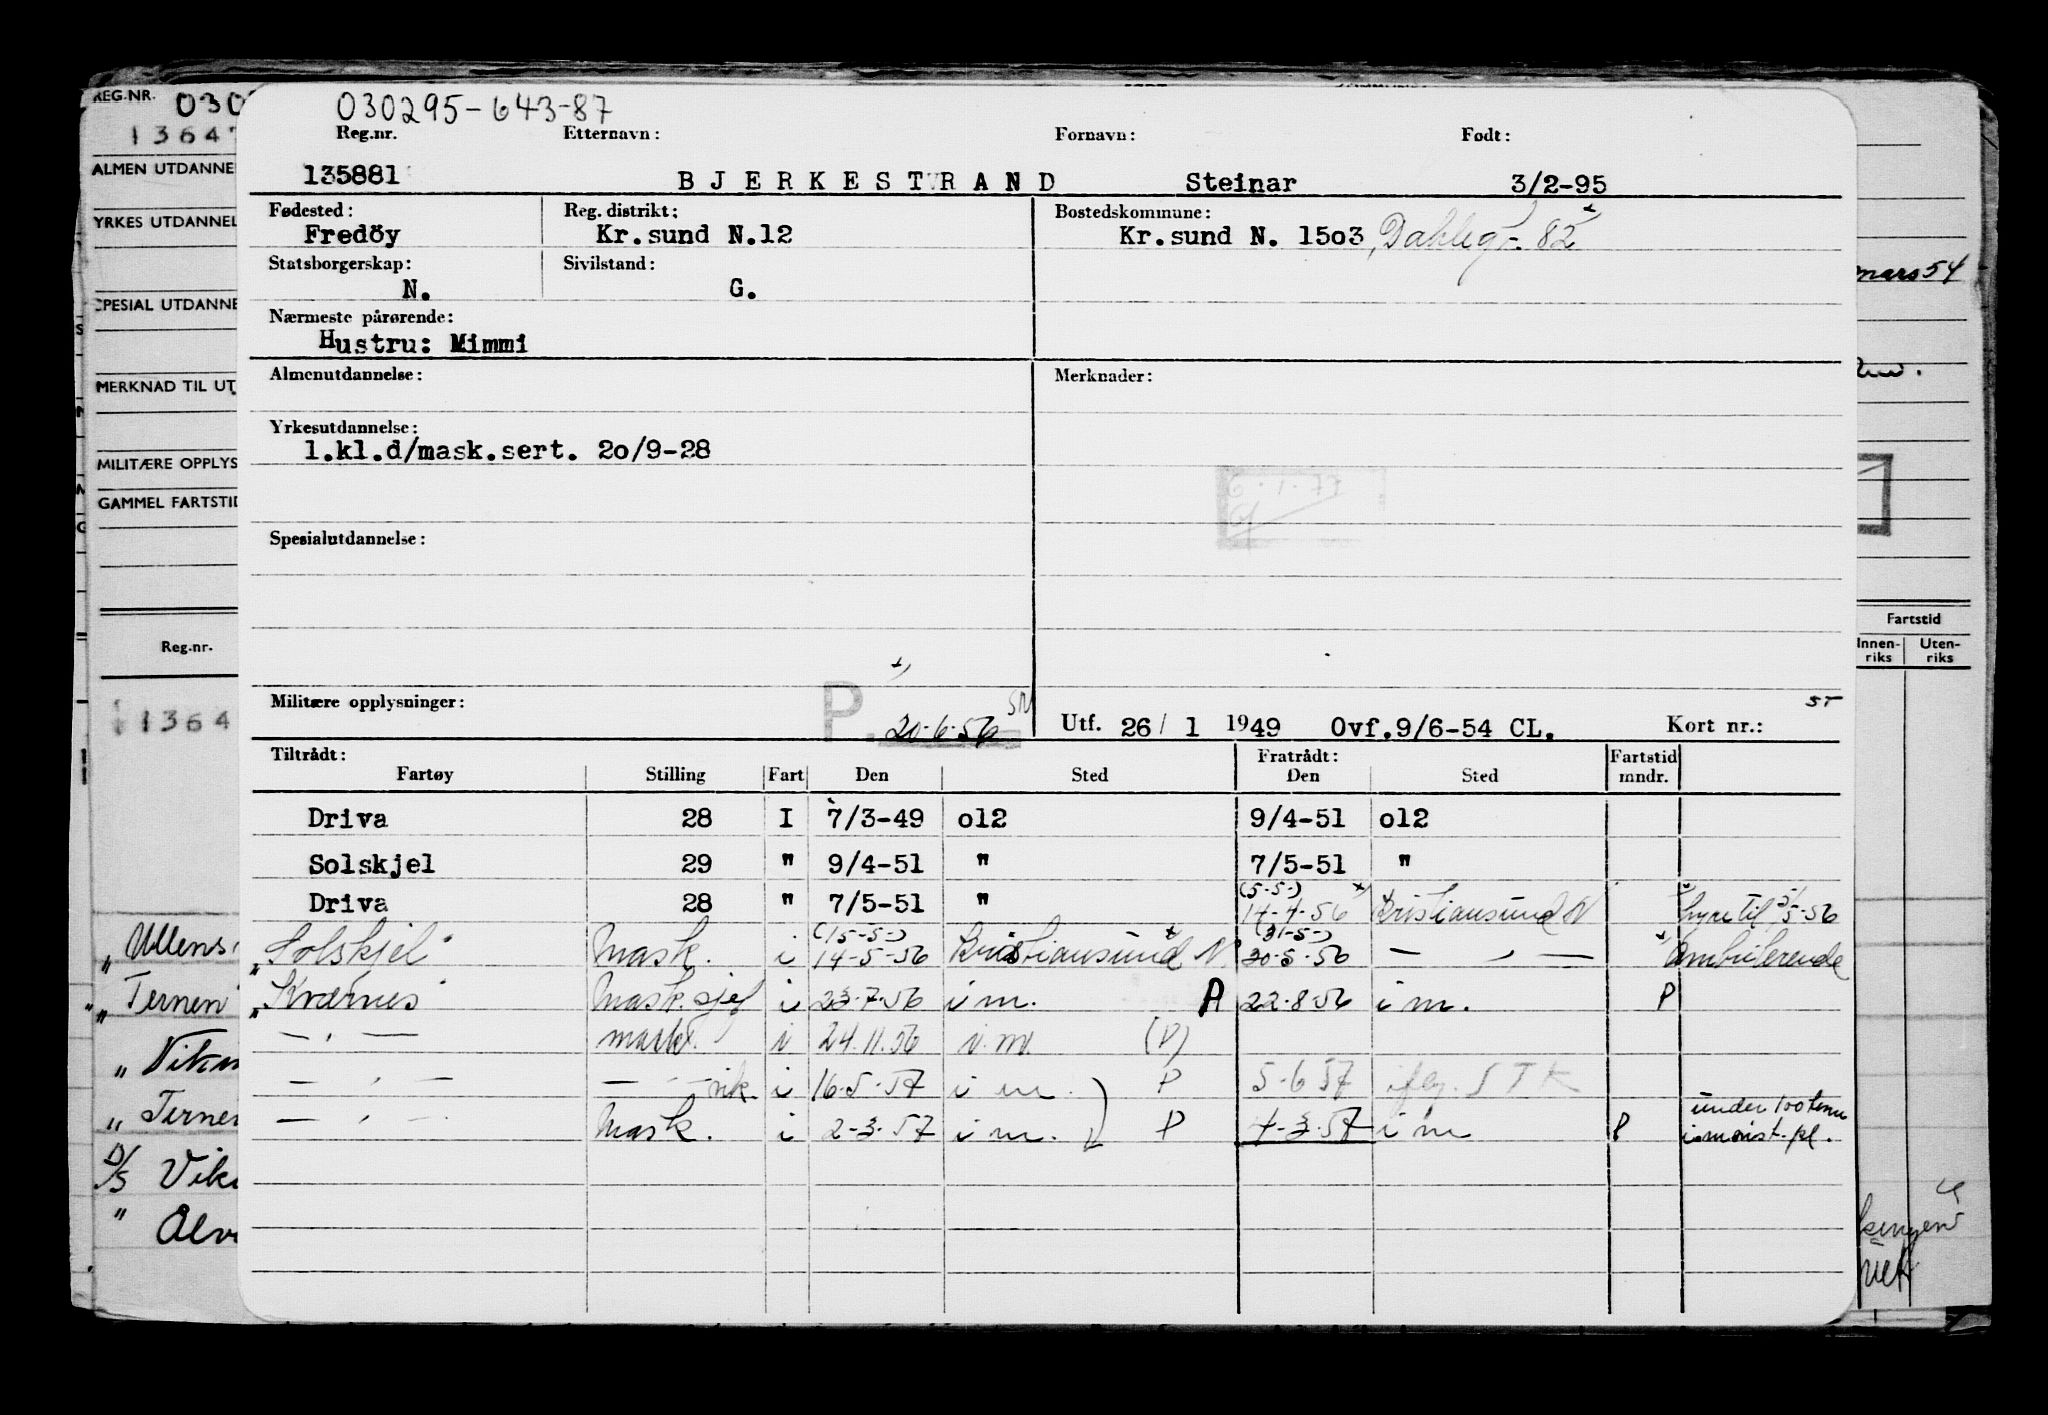 REG.NR. 030
13647
ALMEN UTDANNE
YRKES UTDANNEL
SPESIAL UTDANNE
MERKNAD TIL UT
MILITÆRE OPPLYS
GAMMEL FARTSTID
Reg.nr.
1364
„ Ullens
„ Ternen
„ Vikan
„ Terner
D/S Vik
" Alv
030295-643-87
Reg.nr. Etternavn: Fornavn: Født:
135881 BJERKESTRAND Steinar 3/2-95
Fødested: Reg. distrikt: Bostedskommune:
Fredöy Kr.sund N.12 Kr.sund N. 1503, Dahlegt. 82
Statsborgerskap: Sivilstand:
N. G.
Nærmeste pårørende:
Hustru: Mimmi
Almenutdannelse: Merknader:
Yrkesutdannelse:
1.kl.d/mask.sert. 20/9-28
6.1.77
Spesialutdannelse:
Militære opplysninger: P. 20-6-56 SN Utf. 26/1 1949 Ovf.9/6-54 CL. Kort nr.: ST
Tiltrådt: Fratrådt: Fartstid
Fartøy Stilling Fart Den Sted Den Sted mndr.
Driva 28 I 7/3-49 o12 9/4-51 o12
Solskjel 29 " 9/4-51 " 7/5-51 "
(5-5-)
Driva 28 " 7/5-51 " 14-4-56 Kristiansund N hyre til 5/5-56
(15-5-) (31-5-)
„Solskjel" Mask. i 14-5-56 Kristiansund N. 30-5-56 — " — Ambulerende
„Kværnes" Mask.sjef i 23-7-56 i m. P 22-8-56 i m. P
— " — mask. i 24.11.56 i.m. (P)
— " — — " — vik. i 16-5-57 i m. P 5-6 57 iflg. STK
— " — Mask. i 2-3-57 i m. P 4-3-57 i m P under 100 tonn
mars 54
Fartstid
Innen-riks Uten-riks